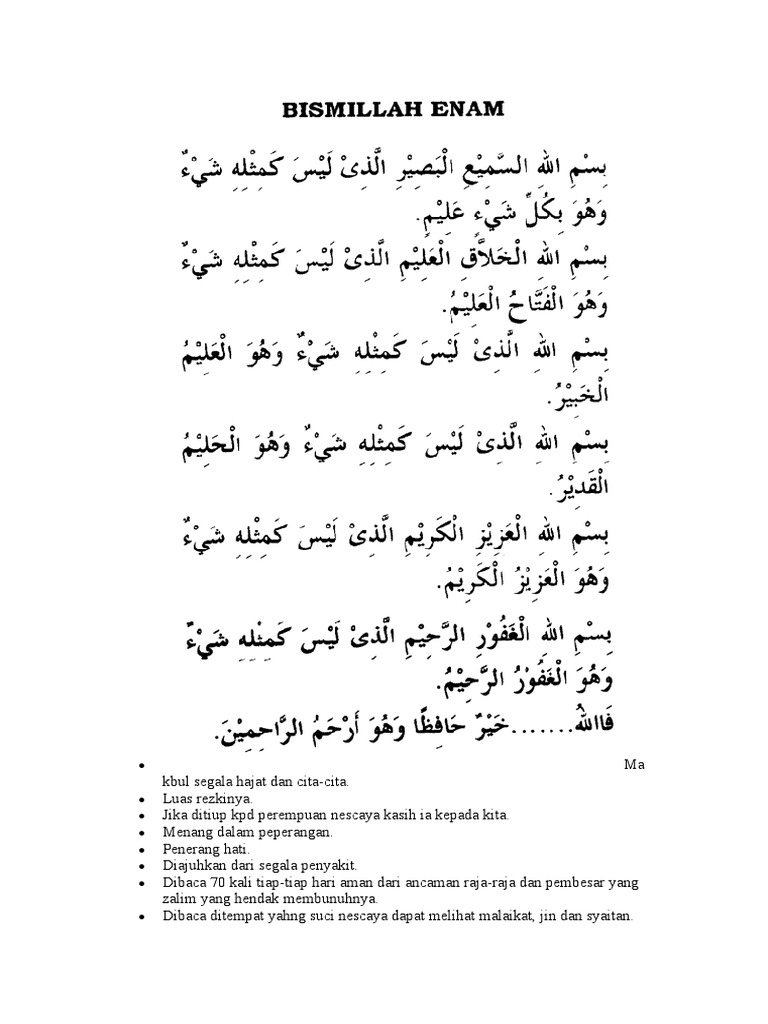 BISMILLAH ENAM
بِسْمِ اللهِ السَّمِيْعِ الْبَصِيْرِ الَّذِىْ لَيْسَ كَمِثْلِهِ شَيْءٌ
وَهُوَ بِكُلِّ شَيْءٍ عَلِيْمٍ.
بِسْمِ اللهِ الْخَلاَّقِ الْعَلِيْمِ الَّذِىْ لَيْسَ كَمِثْلِهِ شَيْءٌ
وَهُوَ الْفَتَّاحُ الْعَلِيْمُ.
بِسْمِ اللهِ الَّذِىْ لَيْسَ كَمِثْلِهِ شَيْءٌ وَهُوَ الْعَلِيْمُ
الْخَبِيْرُ.
بِسْمِ اللهِ الَّذِىْ لَيْسَ كَمِثْلِهِ شَيْءٌ وَهُوَ الْحَلِيْمُ
الْقَدِيْرُ.
بِسْمِ اللهِ الْعَزِيْزِ الْكَرِيْمِ الَّذِىْ لَيْسَ كَمِثْلِهِ شَيْءٌ
وَهُوَ الْعَزِيْزُ الْكَرِيْمُ.
بِسْمِ اللهِ الْغَفُوْرِ الرَّحِيْمِ الَّذِىْ لَيْسَ كَمِثْلِهِ شَيْءٌ
وَهُوَ الْغَفُوْرُ الرَّحِيْمُ.
فَااللهُ.......خَيْرٌ حَافِظًا وَهُوَ أَرْحَمُ الرَّاحِمِيْنَ.
• Ma
kbul segala hajat dan cita-cita.
• Luas rezkinya.
• Jika ditiup kpd perempuan nescaya kasih ia kepada kita.
• Menang dalam peperangan.
• Penerang hati.
• Diajuhkan dari segala penyakit.
• Dibaca 70 kali tiap-tiap hari aman dari ancaman raja-raja dan pembesar yang
zalim yang hendak membunuhnya.
• Dibaca ditempat yahng suci nescaya dapat melihat malaikat, jin dan syaitan.